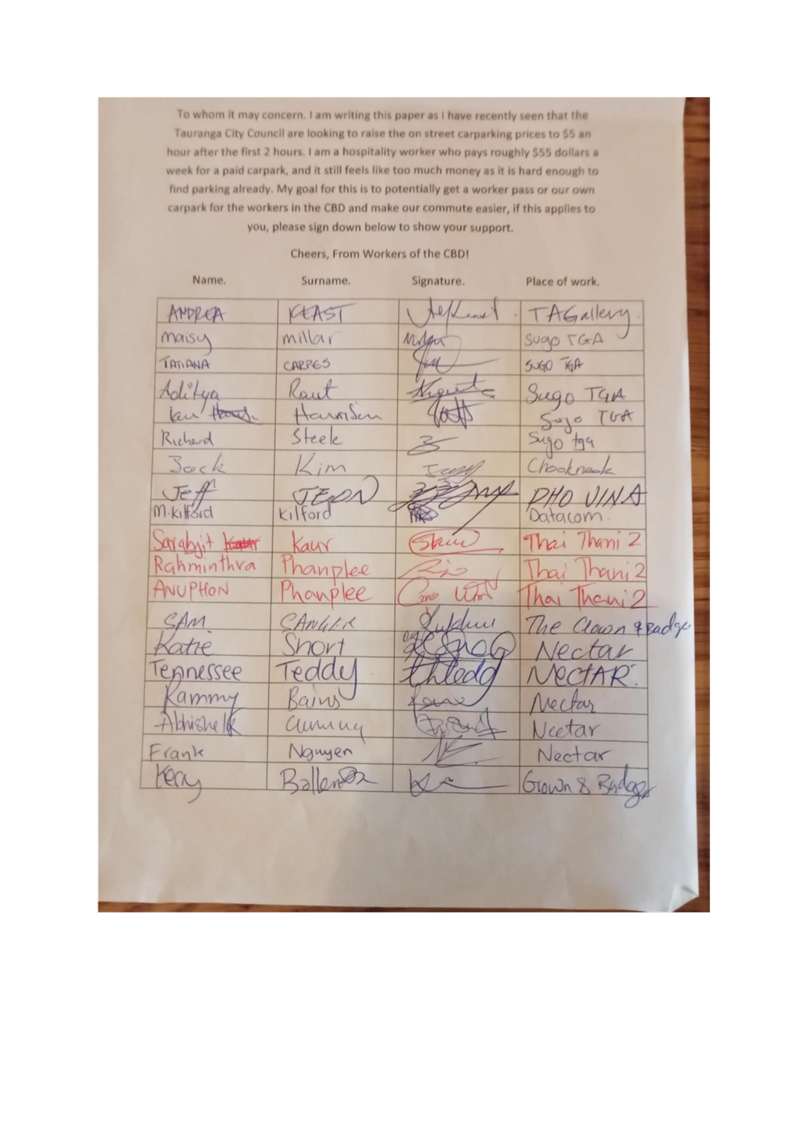 To whom it may concern. I am writing this paper as I have recently seen that the
Tauranga City Council are looking to raise the on street carparking prices to $5 an
hour after the first 2 hours. I am a hospitality worker who pays roughly $55 dollars a
week for a paid carpark, and it still feels like too much money as it is hard enough to
find parking already. My goal for this is to potentially get a worker pass or our own
carpark for the workers in the CBD and make our commute easier, if this applies to
you, please sign down below to show your support.
Cheers, From Workers of the CBD!
Name. Surname. Signature. Place of work.
ANDREA KEAST TAGallery
maisy millar Sugo TGA
TATIANA CARPES SUGO TGA
Aditya Raut Sugo TGA
Harrison Sugo TGA
Richard Steele Sugo tga
Jack Kim Chooknook
Jeff JEON PHO VINA
M.Kilford Kilford Datacom
Sarabjit Kaur Thai Thani 2
Rahminthra Phanplee Thai Thani 2
ANUPHON Phanplee Thai Thani 2
SAM SANGER The Crown & Badge
Katie Short Nectar
Tennessee Teddy NECTAR
Rammy Bains Nectar
Abhishek Nectar
Frank Nguyen Nectar
Kerry Crown & Badge